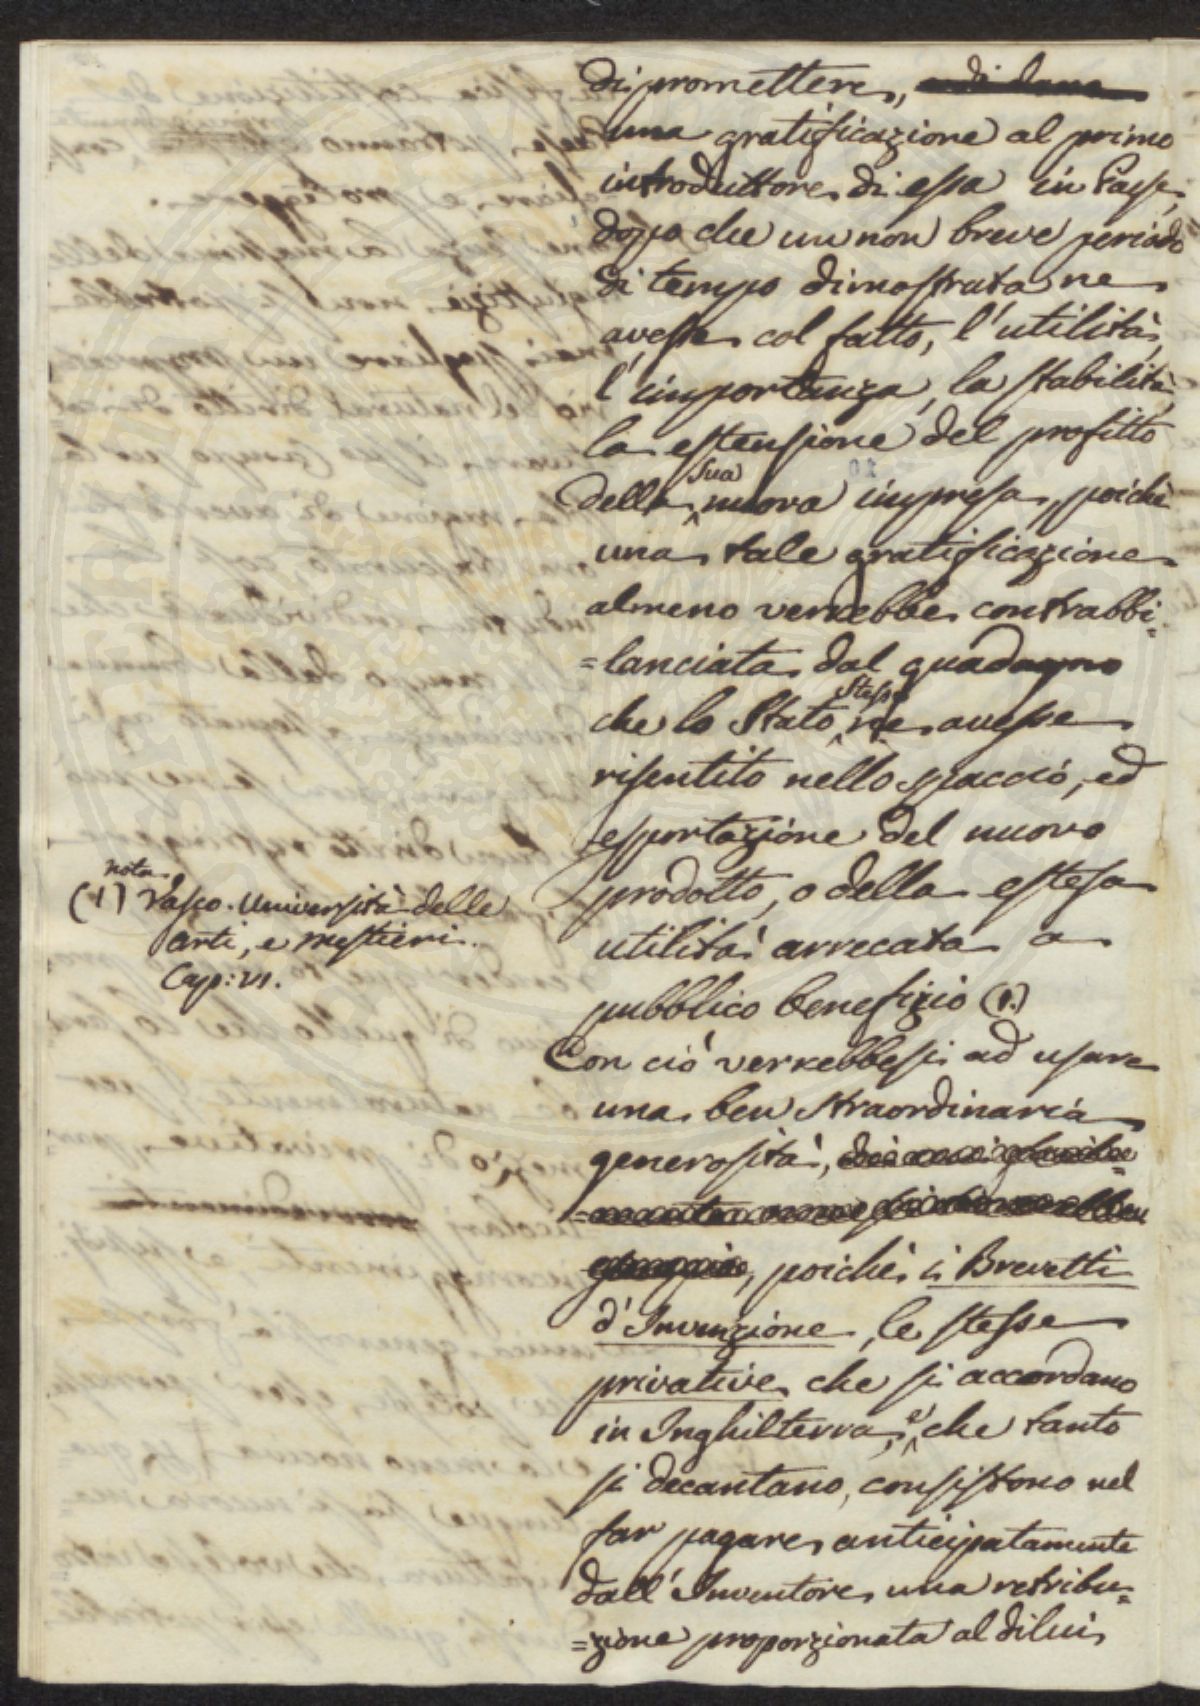 di promettere, e di dare
una gratificazione al primo
introduttore di essa in Paese,
dopo che un non breve periodo
di tempo dimostrata ne
avesse col fatto, l'utilità,
l'importanza, la stabilità,
la estensione del profitto
della sua nuova impresa, poichè
una tale gratificazione
almeno verrebbe contrabbi=
=lanciata dal guadagno
che lo Stato stesso ne avesse
risentito nello spaccio, ed
esportazione del nuovo
prodotto, o della estesa
utilità arrecata a
pubblico benefizio (1.)
Con ciò verrebbesi ad usare
una ben straordinaria
generosità,
, poichè i Brevetti
d'Invenzione, le stesse
privative che si accordano
in Inghilterra, e che tanto
si decantano, consistono nel
far pagare anticipatamente
dall'Inventore una retribu=
=zione proporzionata al di lui
nota
(1) Vasco. Università delle
arti, e mestieri.
Cap: VI.